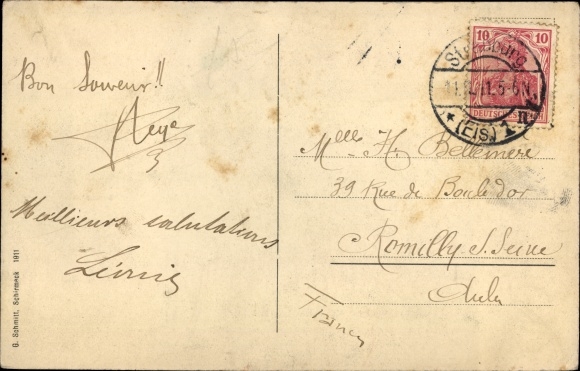 Bon Souvenir!!
Meilleurs salutations
G. Schmitt, Schirmeck 1911
10 10
DEUTSCHES REICH
Strassburg
(Els) 1
Melle H. Bellemère
39 Rue de Boulodor
Romilly s. Seine
Aube
France